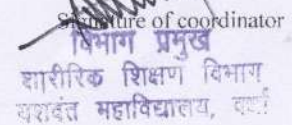 Signature of coordinator
विभाग प्रमुख
शारीरिक शिक्षण विभाग
यशवंत महाविद्यालय, वर्धा